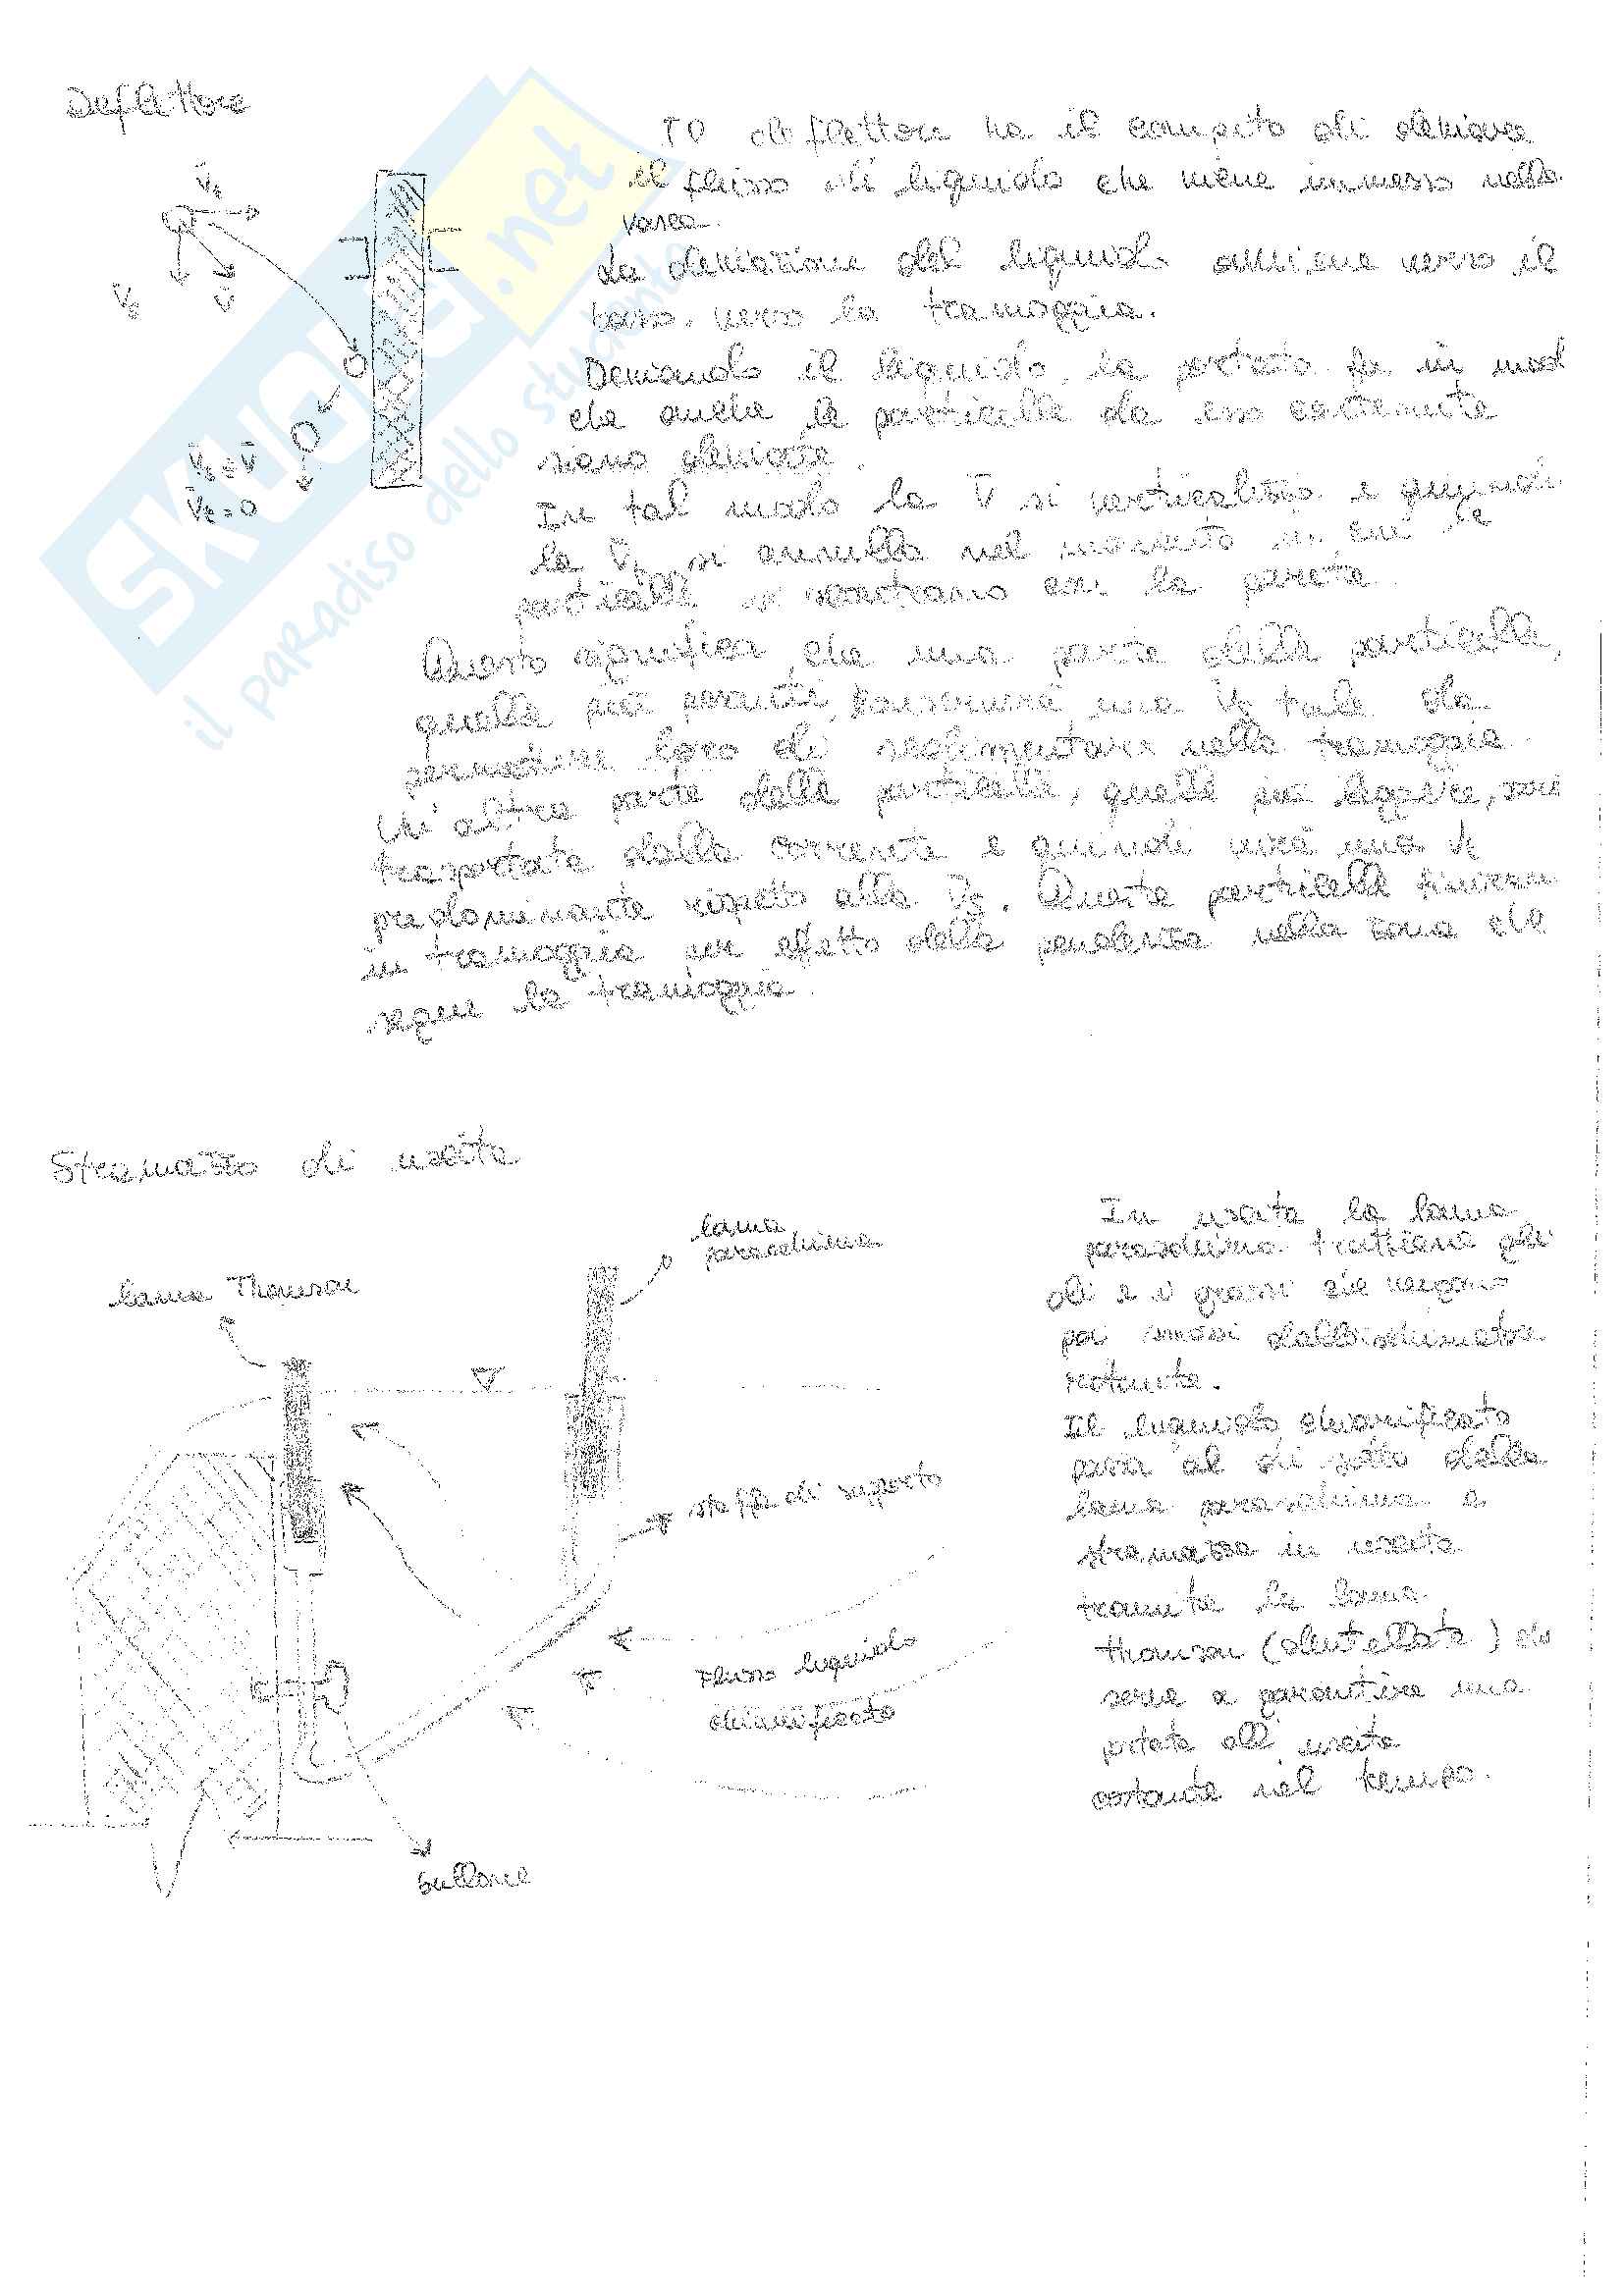 Deflettore
Il deflettore ha il compito di deviare
il flusso di liquido che viene immesso nella
vasca.
La deviazione del liquido avviene verso il
basso, verso la tramoggia.
Deviando il liquido, la portata fa in mod
che anche le particelle da esso contenute
siano deviate.
In tal modo la v̄ si verticalizza e quindi
la v̄t si annulla nel momento in cui le
particelle si scontrano con la parete.
Questo significa che una parte delle particelle,
quelle più pesanti, conserverà una vs tale da
permettere loro di sedimentare nella tramoggia.
Un'altra parte delle particelle, quelle più leggere,
trasportate dalla corrente e quindi avrà una vt
predominante rispetto alla v̄s. Queste particelle finiran
in tramoggia per effetto della pendenza nella zona che
segue la tramoggia.
v̄t
v̄s
v̄
v̄s = v̄
v̄t = 0
SKUOLA.net
il paradiso dello studente
Stramazzo di uscita
lama Thomson
lama
paraschiuma
staffa di supporto
Flusso liquido
chiarificato
bullone
In uscita la lama
paraschiuma trattiene gli
oli e i grassi che vengono
poi rimossi dallo schiumatore
rotante.
Il liquido chiarificato
passa al di sotto della
lama paraschiuma e
stramazza in uscita
tramite la lama
thomson (dentellata) che
serve a garantire una
portata all'uscita
costante nel tempo.